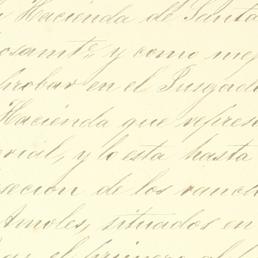 Hacienda de Santa
osamte. y como mej
probar en el Juzgado
Hacienda que represe
erial, y lo esta hasta
sección de los ranch
Amoles, situados en
el primero al